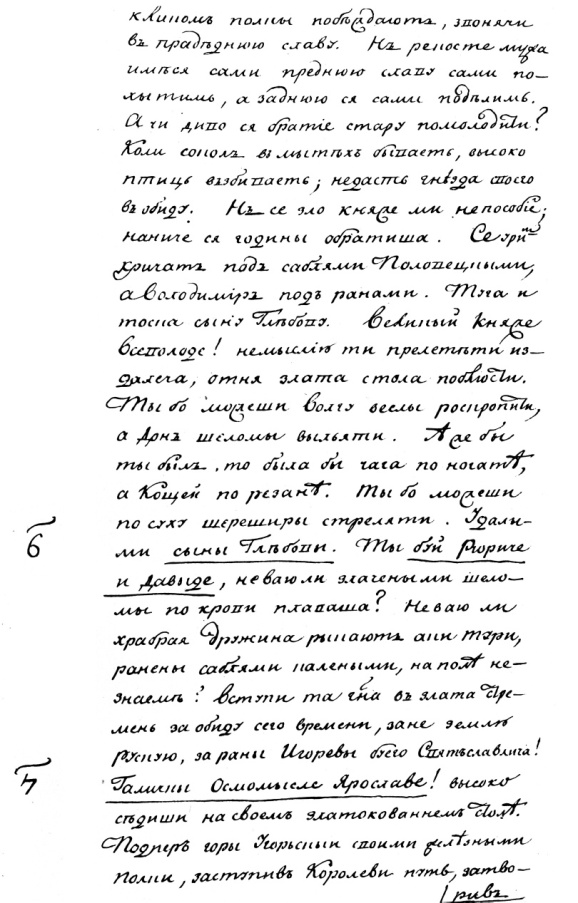 кликомъ полки побѣждаютъ, звонячи
въ прадѣднюю славу. Нъ рекосте мужа
имѣся сами преднюю славу сами по-
хытимъ, а заднюю ся сами подѣлимъ.
А чи диво ся братіе стару помолодити?
Коли соколъ въ мытѣхъ бываетъ, высоко
птицъ възбиваетъ; недастъ гнѣзда своего
въ обиду. Нъ се зло княже ми непособіе;
наниче ся годины обратиша. Се Урим
кричатъ подъ саблями Половецкыми,
а Володимиръ подъ ранами. Туга и
тоска сыну Глѣбову. Великый Княже
Всеволоде! немыслію ти прелетѣти из-
далеча, отня злата стола поблюсти.
Ты бо можеши Волгу веслы роскропити,
а Донъ шеломы выльяти. Аже бы
ты былъ, то была бы чага по ногатѣ,
а Кощей по резанѣ. Ты бо можеши
по суху шереширы стреляти. Удалы-
6 ми сыны Глѣбовы. Ты буй Рюриче
и Давыде, неваю ли злачеными шело-
мы по крови плаваша? Неваю ли
храбрая дружина рыкаютъ аки тури,
ранены саблями калеными, на полѣ не-
знаемѣ? Вступи та гна въ злата стре-
мень за обиду сего времени, зане землѣ
русную, за раны Игоревы буего Святъславлича!
7 Галичкы Осмомысле Ярославе! высоко
сѣдиши на своемъ златокованнемъ столѣ.
Подперъ горы Угорьскыи своими желѣзными
полки, заступивъ Королеви путь, затво-
ривъ